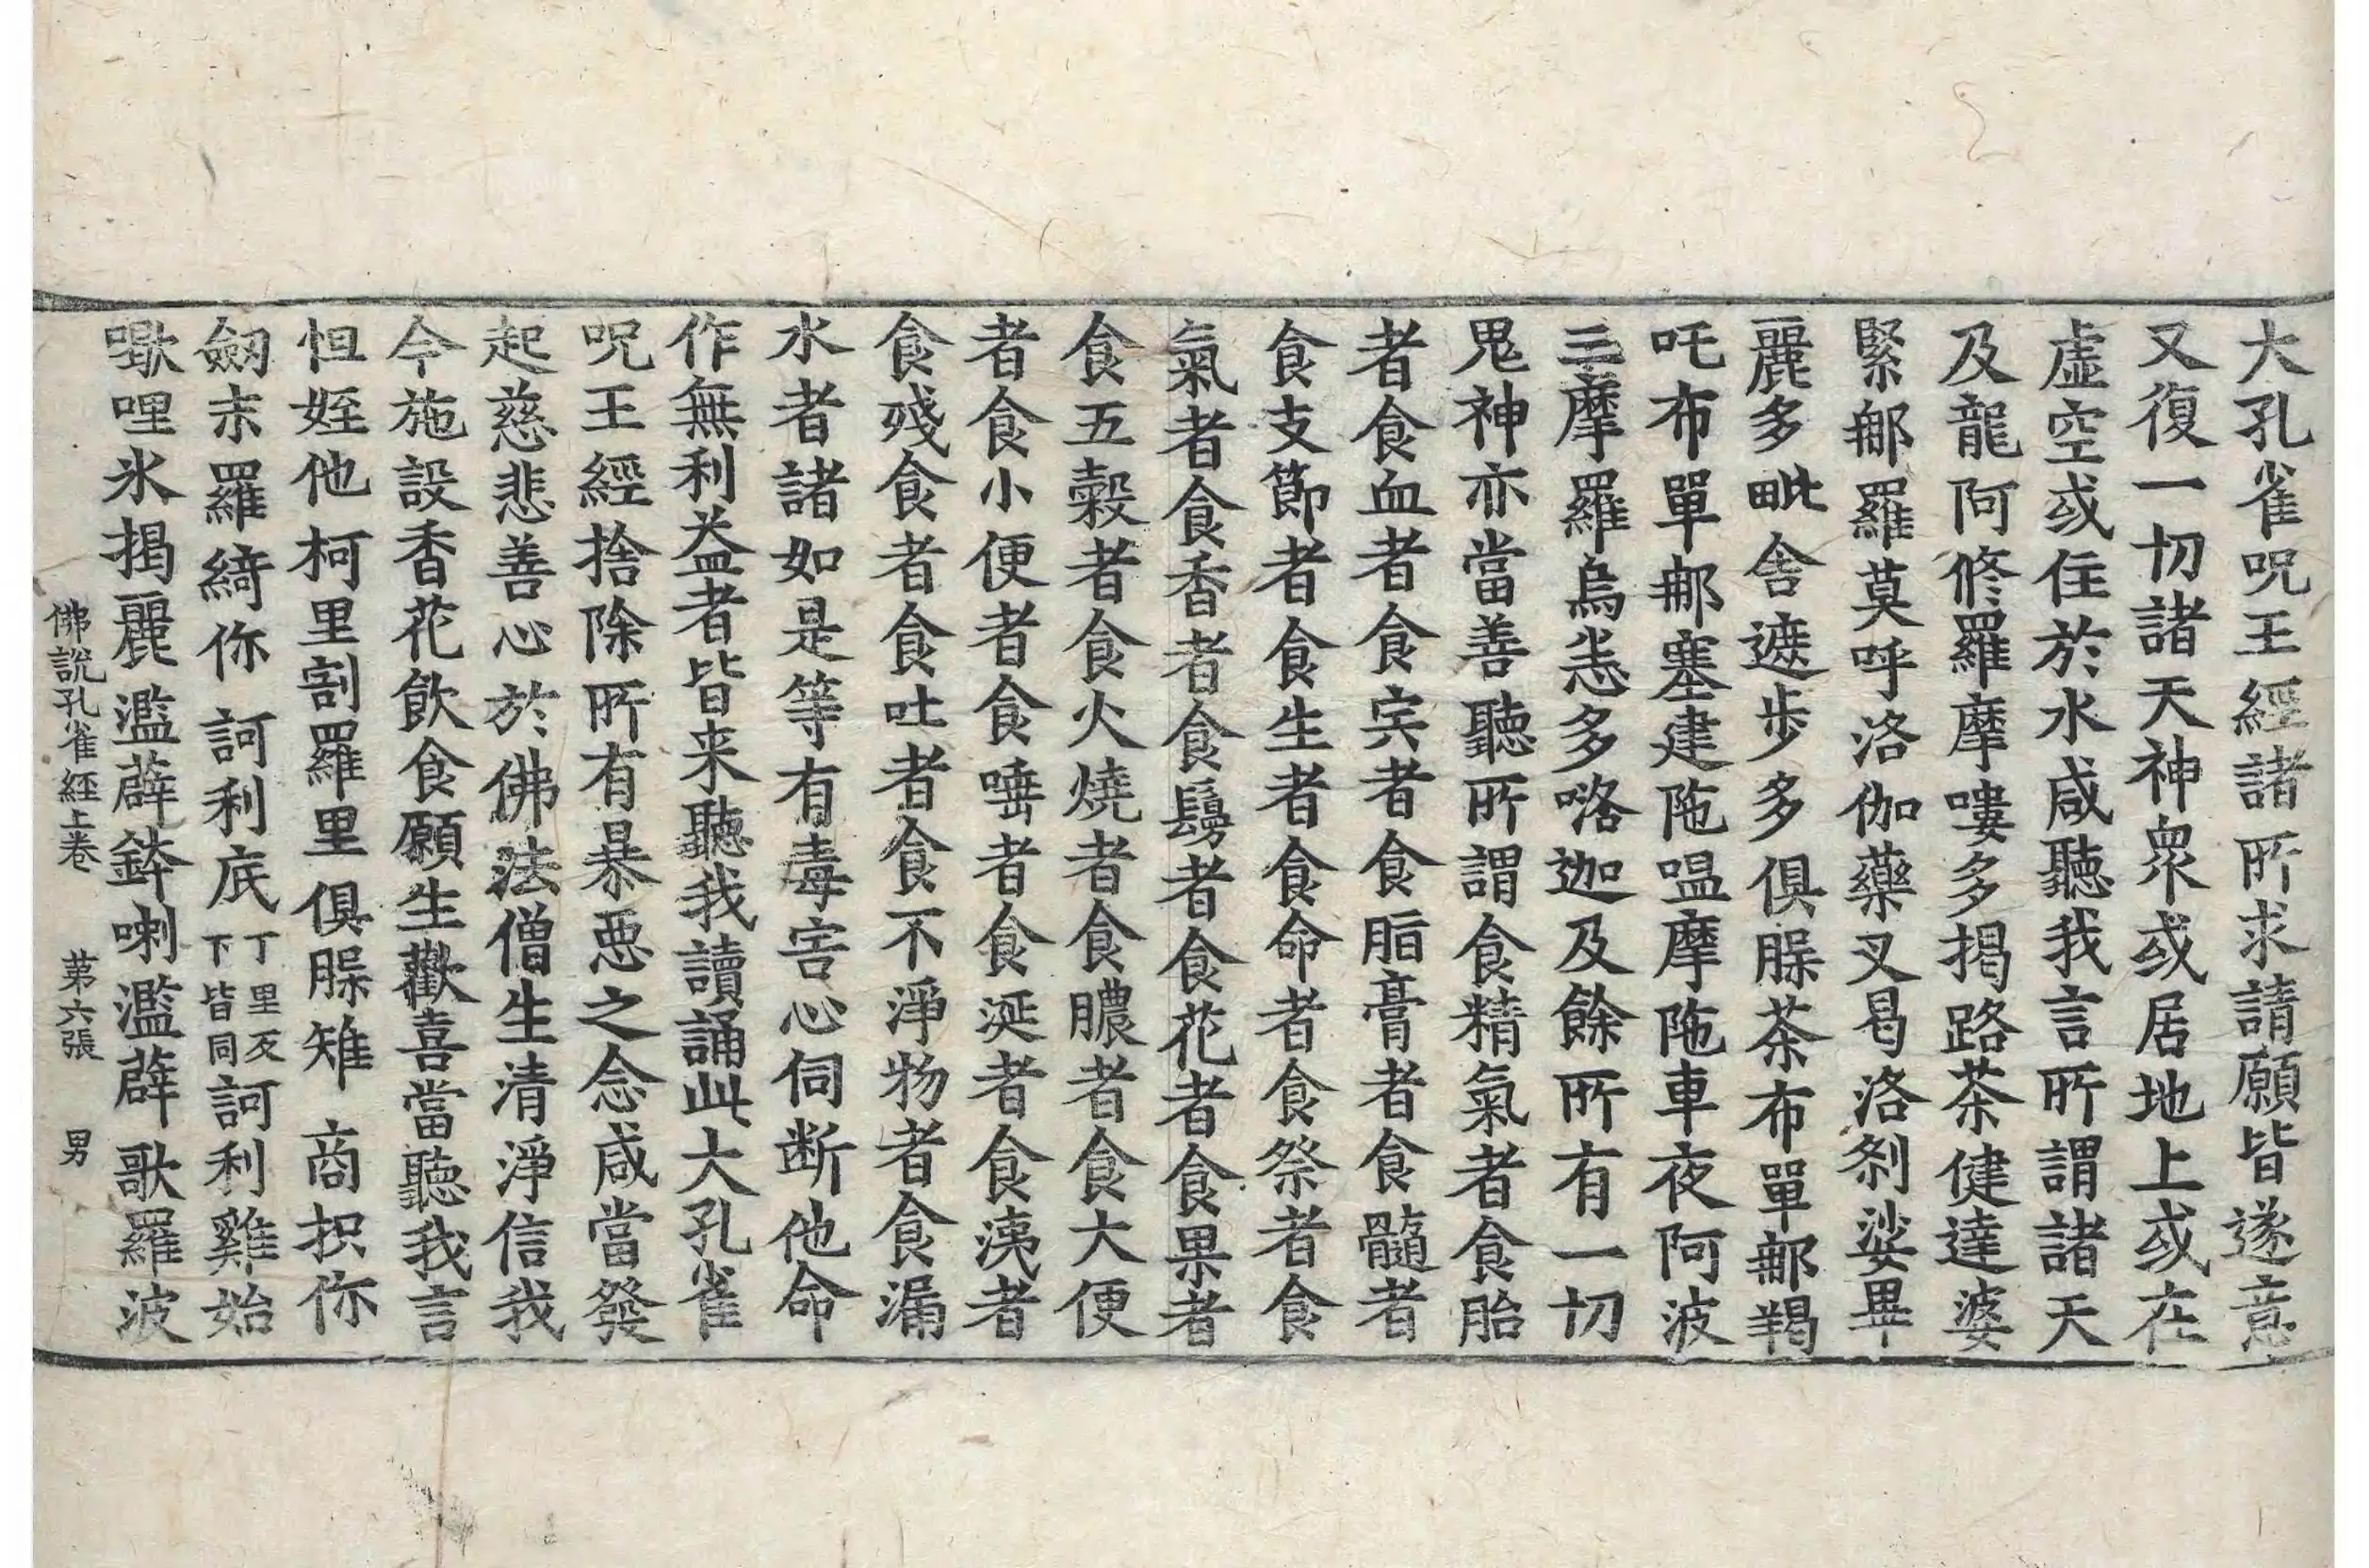 大孔雀呪王經諸所求請願皆遂意
又復一切諸天神衆或居地上或在
虛空或住於水咸聽我言所謂諸天
及龍阿脩羅摩嘍多揭路荼健達婆
緊那羅莫呼洛伽藥叉曷洛剎娑畢
麗多毗舍遮步多俱脲荼布單那羯
吒布單那塞建陁嗢摩陁車夜阿波
三摩羅烏恙多咯迦及餘所有一切
鬼神亦當善聽所謂食精氣者食胎
者食血者食肉者食脂膏者食髓者
食支節者食生者食命者食祭者食
氣者食香者食鬘者食花者食果者
食五穀者食火燒者食膿者食大便
者食小便者食唾者食涎者食洟者
食殘食者食吐者食不淨物者食漏
水者諸如是等有毒害心伺断他命
作無利益者皆来聽我讀誦此大孔雀
呪王經捨除所有暴惡之念咸當發
起慈悲善心於佛法僧生清淨信我
今施設香花飲食願生歡喜當聽我言
怛姪他 柯里割羅里 俱脲雉 商抧你
劔末羅綺你 訶利底丁里反下皆同訶利雞始
噦哩氷揭麗 濫薜鉢喇濫薜 歌羅波
佛說孔雀經上卷 第六張 男